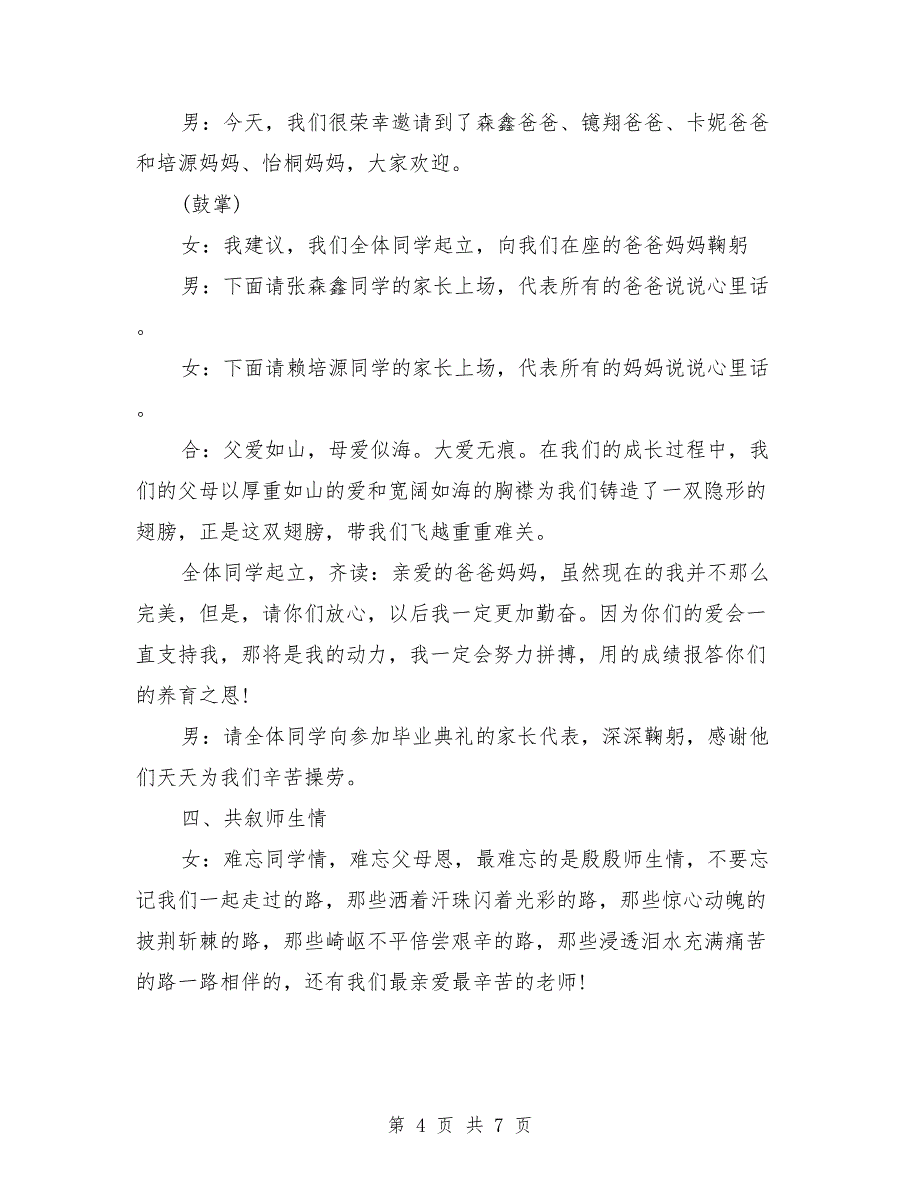 男：今天，我们很荣幸邀请到了森鑫爸爸、镱翔爸爸、卡妮爸爸
和培源妈妈、怡桐妈妈，大家欢迎。
(鼓掌)
女：我建议，我们全体同学起立，向我们在座的爸爸妈妈鞠躬
男：下面请张森鑫同学的家长上场，代表所有的爸爸说说心里话
。
女：下面请赖培源同学的家长上场，代表所有的妈妈说说心里话
。
合：父爱如山，母爱似海。大爱无痕。在我们的成长过程中，我
们的父母以厚重如山的爱和宽阔如海的胸襟为我们铸造了一双隐形的
翅膀，正是这双翅膀，带我们飞越重重难关。
全体同学起立，齐读：亲爱的爸爸妈妈，虽然现在的我并不那么
完美，但是，请你们放心，以后我一定更加勤奋。因为你们的爱会一
直支持我，那将是我的动力，我一定会努力拼搏，用的成绩报答你们
的养育之恩!
男：请全体同学向参加毕业典礼的家长代表，深深鞠躬，感谢他
们天天为我们辛苦操劳。
四、共叙师生情
女：难忘同学情，难忘父母恩，最难忘的是殷殷师生情，不要忘
记我们一起走过的路，那些洒着汗珠闪着光彩的路，那些惊心动魄的
披荆斩棘的路，那些崎岖不平倍尝艰辛的路，那些浸透泪水充满痛苦
的路一路相伴的，还有我们最亲爱最辛苦的老师!
第 4 页 共 7 页